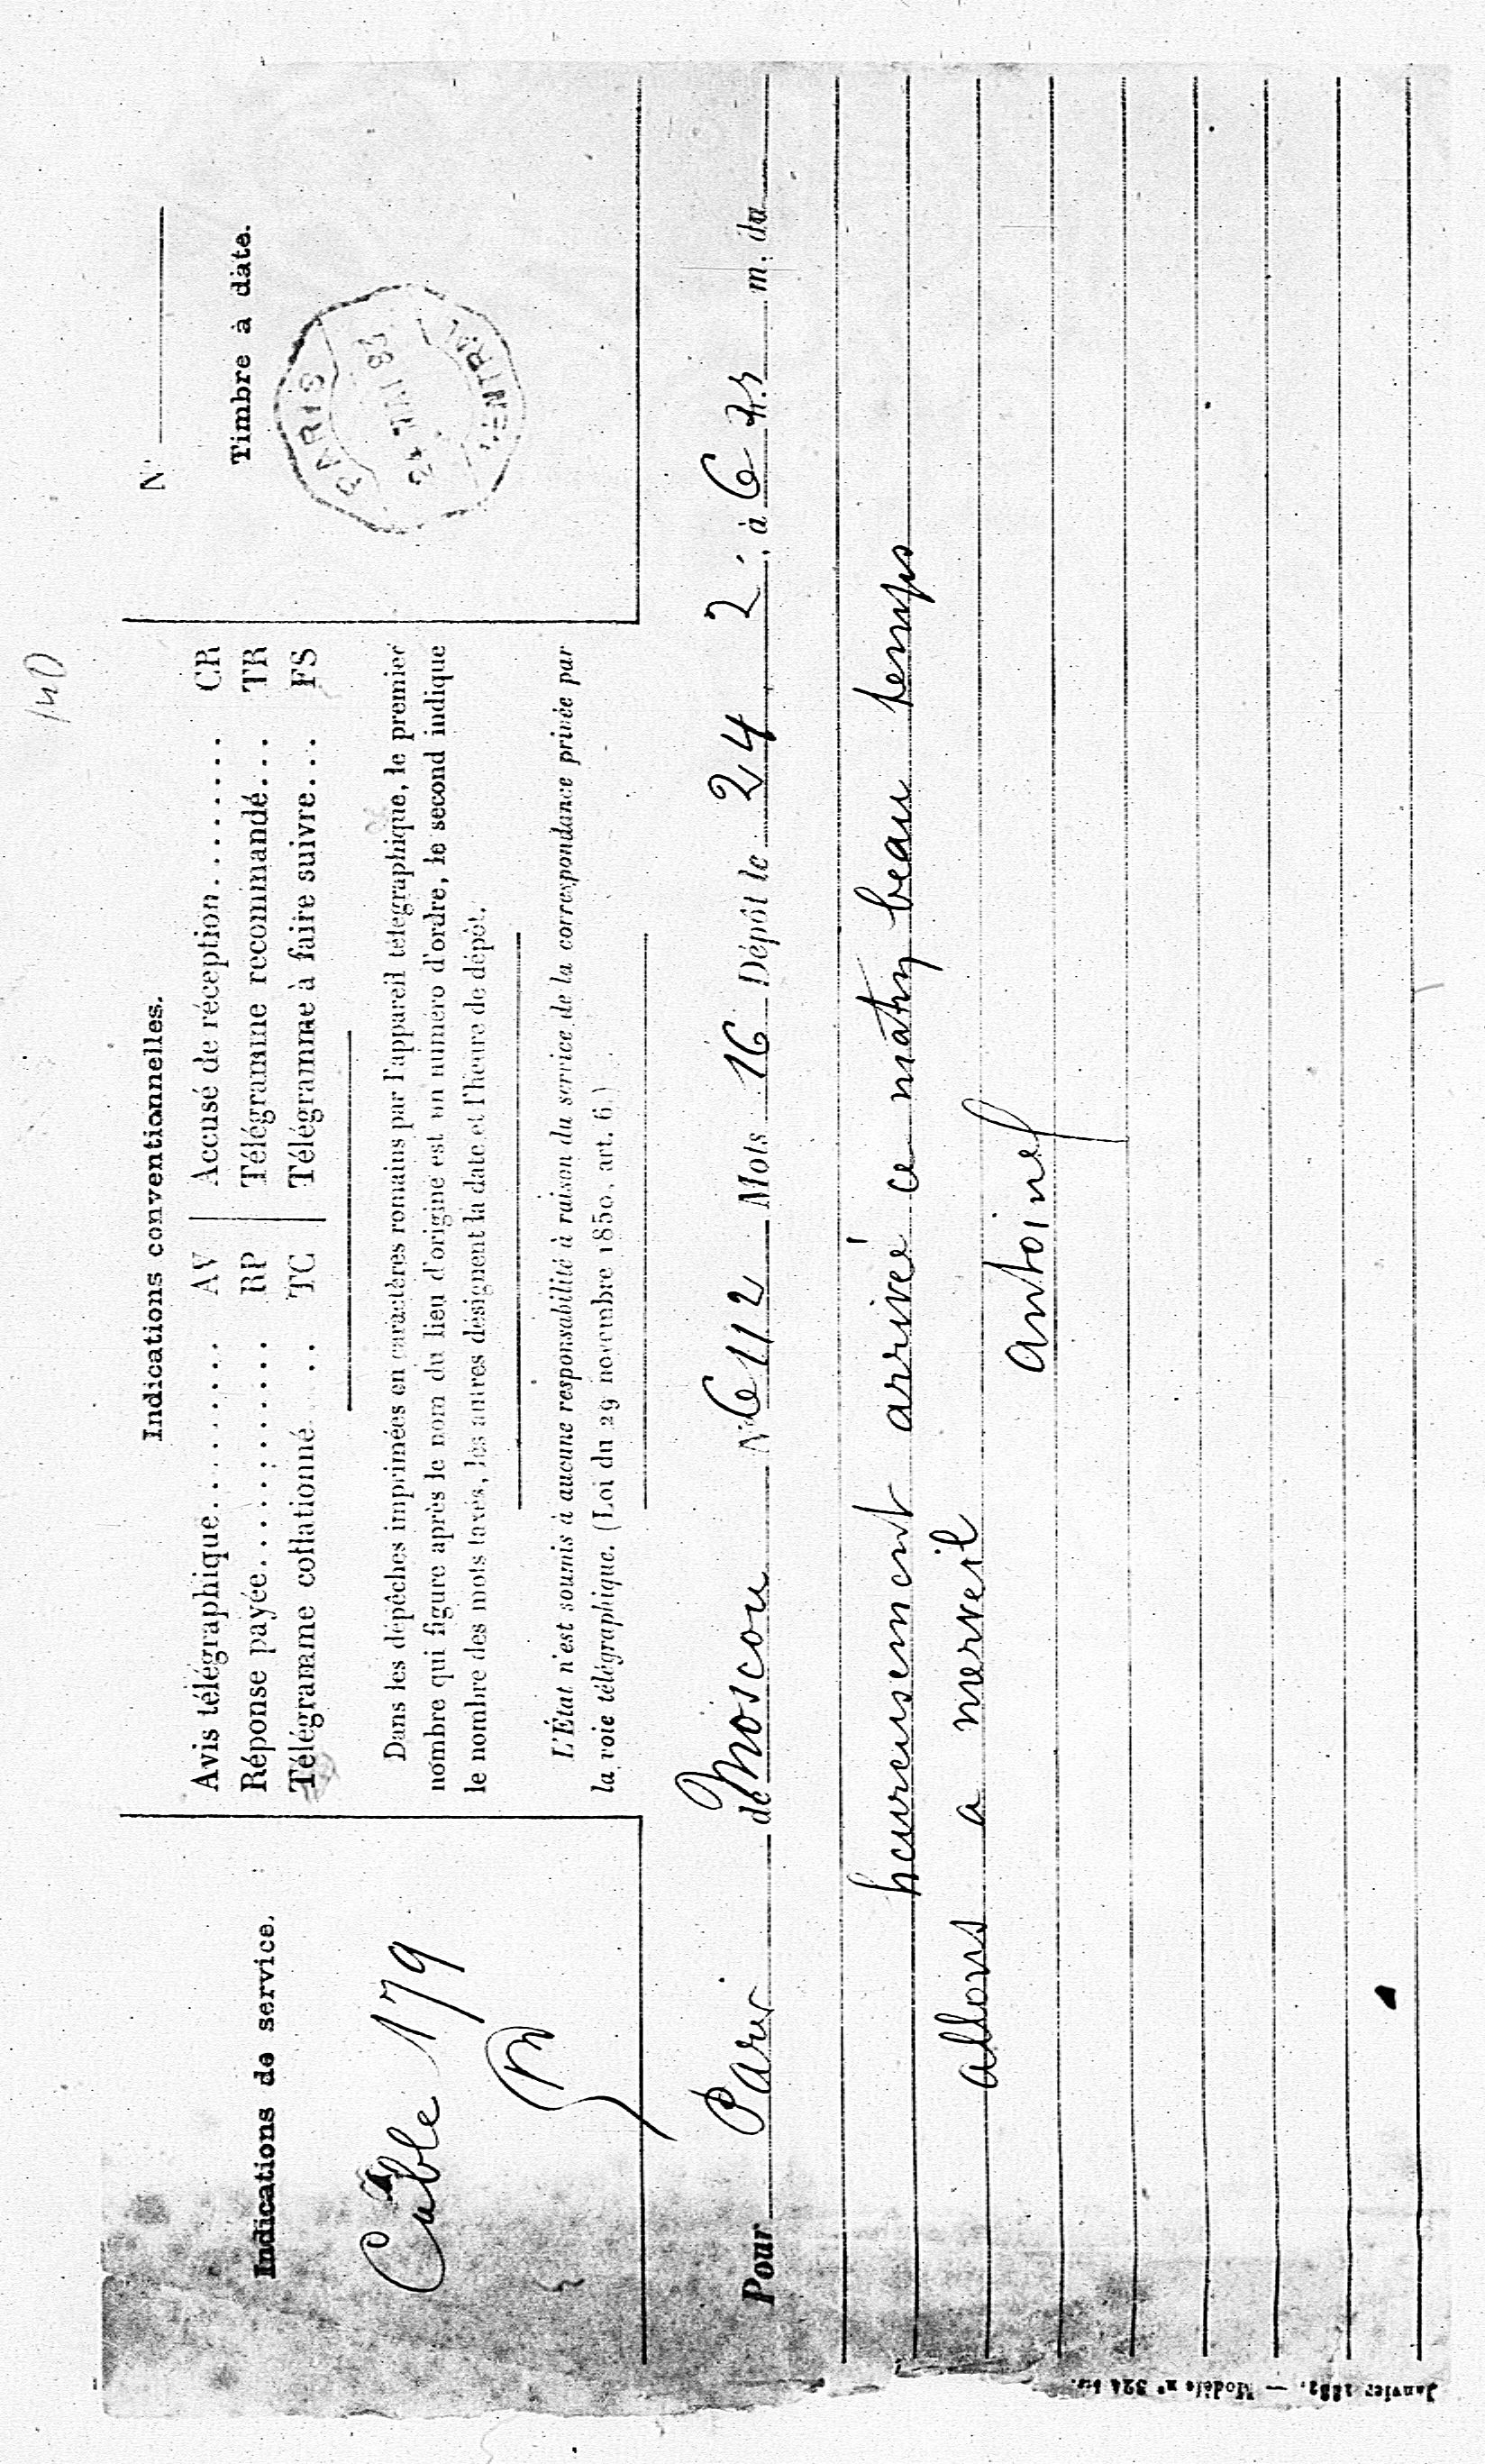 140
Indications de service.
Cable 179
Indications conventionnelles.
Avis télégraphique......... AV
Réponse payée........... RP
Télégramme collationné.... TC
Accusé de réception........ CR
Télégramme recommandé... TR
Télégramme à faire suivre... FS
Dans les dépêches imprimées en caractères romains par l'appareil télégraphique, le premier
nombre qui figure après le nom du lieu d'origine est un numéro d'ordre, le second indique
le nombre des mots taxés, les autres désignent la date et l'heure de dépôt.
L'État n'est soumis à aucune responsabilité à raison du service de la correspondance privée par
la voie télégraphique. (Loi du 29 novembre 1850, art. 6.)
N°
Timbre à date.
PARIS
24 JUIN 82
CENTRAL
Pour Paris de Moscou N° 6112 Mots 16 Dépôt le 24 2 ; à 6 h.s m. du
heureusement arrivé ce matin beau temps
allons a merveil
antoine
Janvier 1882. — Modèle n° 324 bis.